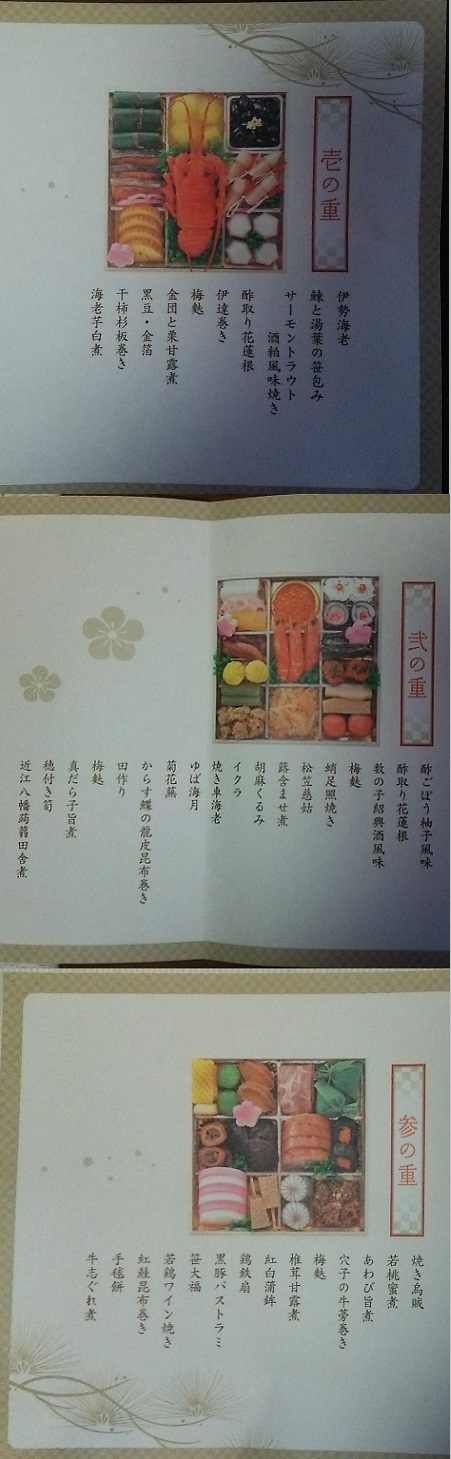 壱の重
伊勢海老
鰊と湯葉の笹包み
サーモントラウト
酒粕風味焼き
酢取り花蓮根
伊達巻き
梅麩
金団と栗甘露煮
黒豆・金箔
干柿杉板巻き
海老芋白煮
弐の重
酢ごぼう柚子風味
酢取り花蓮根
数の子紹興酒風味
梅麩
蛸足照焼き
松笠慈姑
蕗含ませ煮
胡麻くるみ
イクラ
焼き車海老
ゆば海月
菊花蕪
からす鰈の龍皮昆布巻き
田作り
梅麩
真だら子旨煮
穂付き筍
近江八幡蒟蒻田舎煮
参の重
焼き烏賊
若桃蜜煮
あわび旨煮
穴子の牛蒡巻き
梅麩
椎茸甘露煮
紅白蒲鉾
鶏鉄扇
黒豚パストラミ
笹大福
若鶏ワイン焼き
紅鮭昆布巻き
手毬餅
牛志ぐれ煮